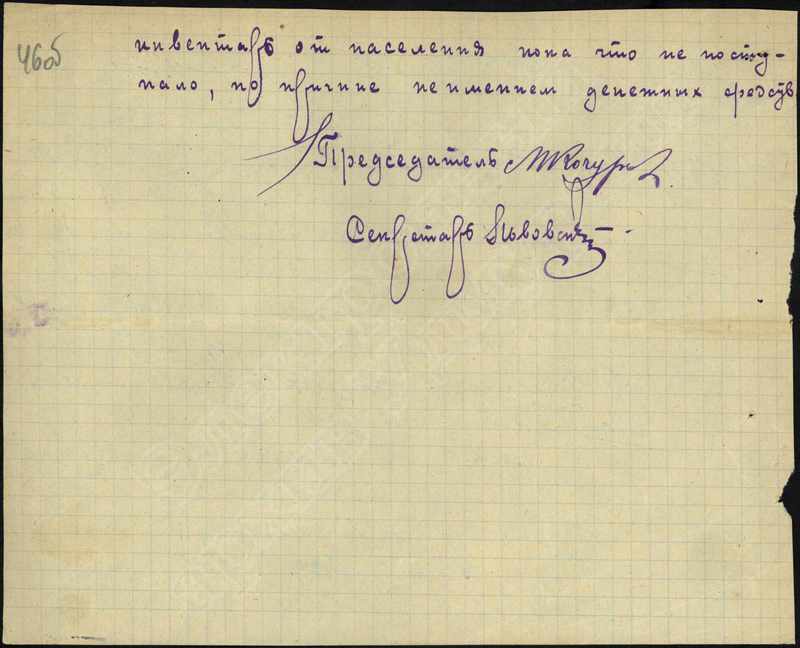 46об
инвентарь от населения пока что не посту-
пало, по причине неимением денежных средств
Председатель МКочура
Секретарь Львовский